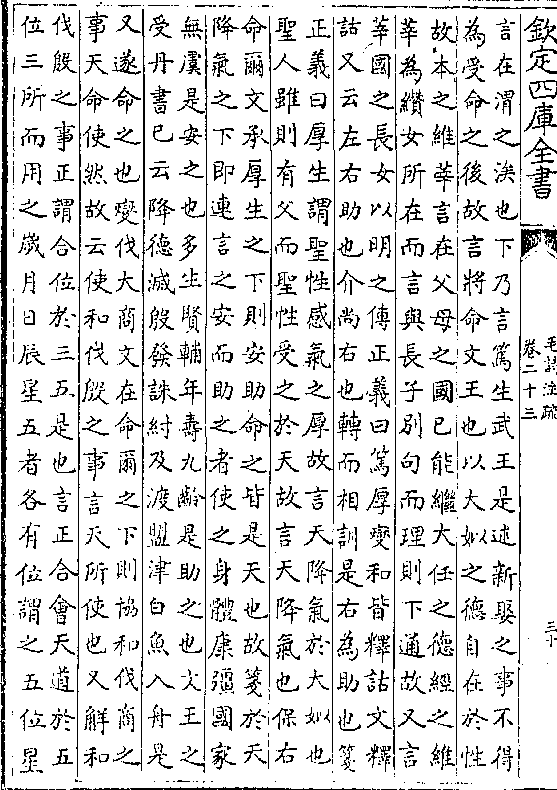 欽定四庫全書
毛詩注疏
卷二十三
三十
言在渭之涘也下乃言篤生武王是述新娶之事不得
為受命之後故言將命文王也以大姒之德自在於性
故本之維莘言在父母之國已能繼大任之德經之維
莘為纘女所在而言與長子別句而理則下通故又言
莘國之長女以明之傳正義曰篤厚燮和皆釋詁文釋
詁又云左右助也介尚右也轉而相訓是右為助也箋
正義曰厚生謂聖性感氣之厚故言天降氣於大姒也
聖人雖則有父而聖性受之於天故言天降氣也保右
命爾文承厚生之下則安助命之皆是天也故箋於天
降氣之下即連言之安而助之者使之身體康彊國家
無虞是安之也多生賢輔年壽九齡是助之也文王之
受丹書已云降德滅殷發誅紂及渡盟津白魚入舟是
又遂命之也燮伐大商文在命爾之下則協和伐商之
事天命使然故云使和伐殷之事言天所使也又解和
伐殷之事正謂合位於三五是也言正合會天道於五
位三所而用之歲月日辰星五者各有位謂之五位星